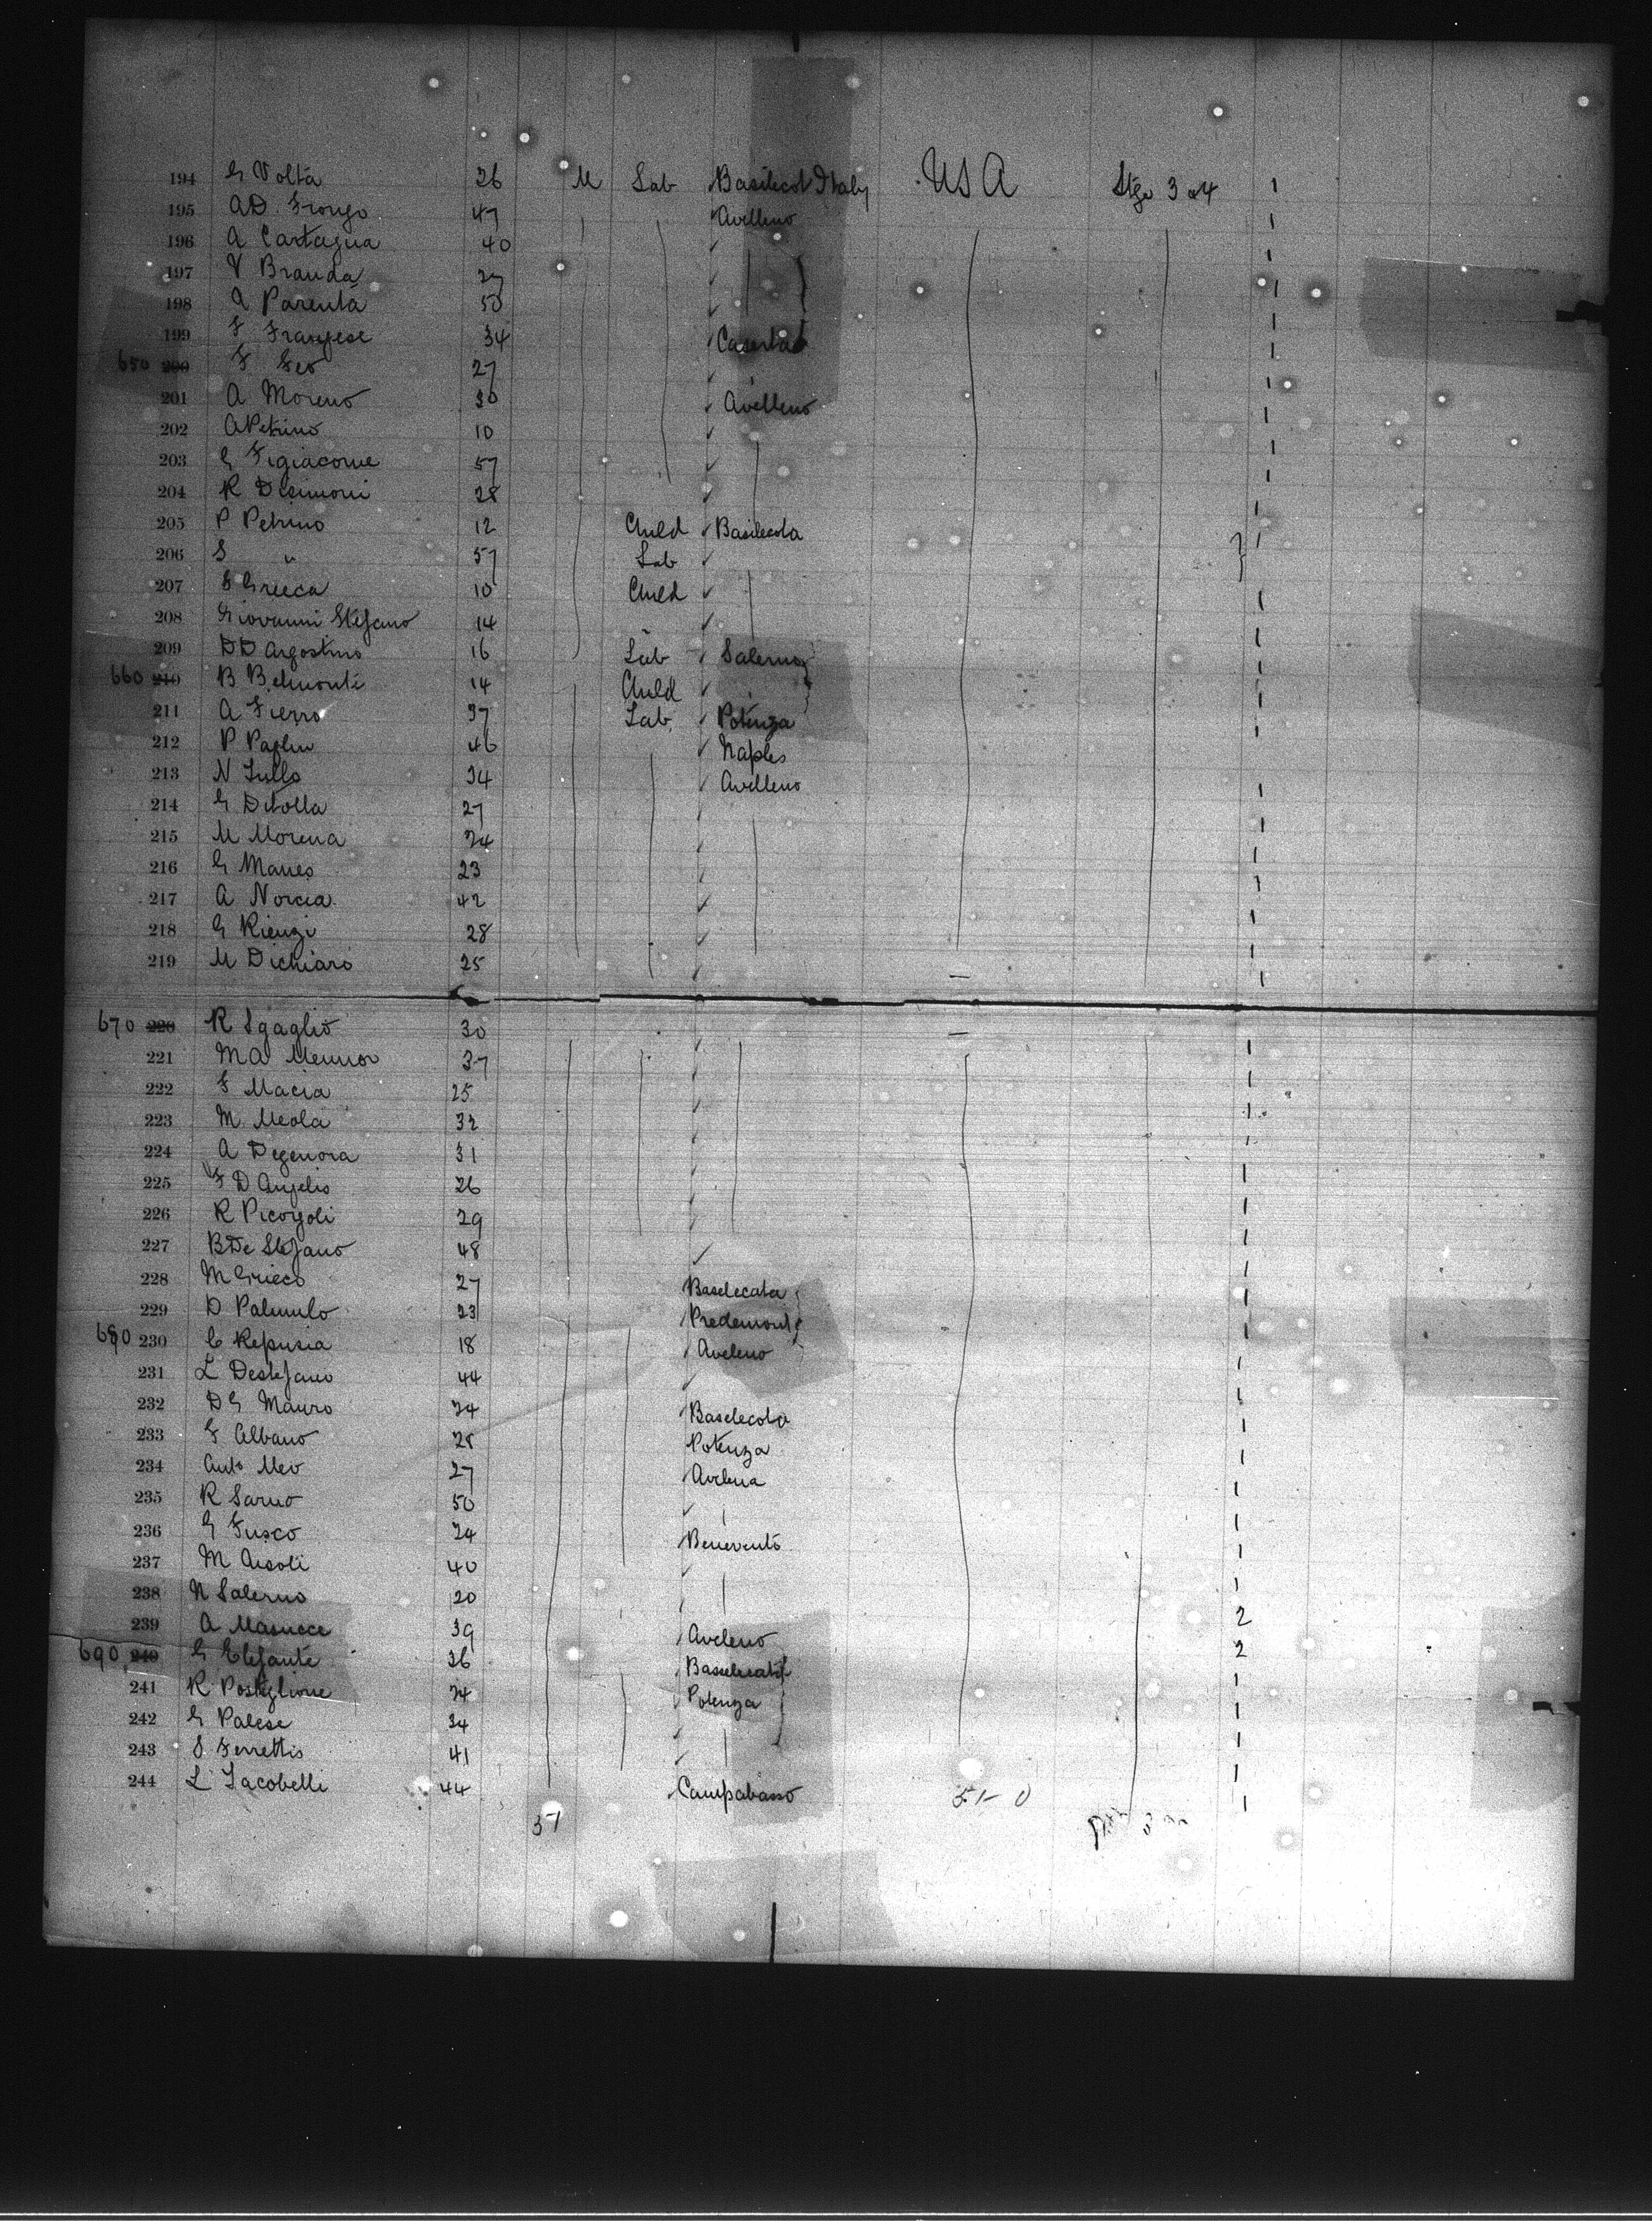 194 G Volta 26 M Lab Basilicat Italy USA Stge 3 & 4 1
195 AD. Frongo 47 Avelleno 1
196 A Cartagua 40 1
197 V Branda 27 1
198 A Parenta 50 1
199 F Franzese 34 Caserta 1
650 200 F Geo 27 1
201 A Moreno 30 Avelleno 1
202 A Petrino 10 1
203 G Figiacome 57 1
204 R Desimoni 28 1
205 P Petrino 12 Child Basilecata 1
206 S " 57 Lab
207 Grieca 10 Child 1
208 Giovanni Stefano 14 1
209 DD Argostino 16 Lab Salerno 1
660 210 B Belmonti 14 Child 1
211 A Fierro 37 Lab Potenza 1
212 P 46 Naples
213 N Lullo 34 Avelleno 1
214 G Ditolla 27 1
215 M Morena 24 1
216 G Manes 23 1
217 A Norcia 42 1
218 G Rienzi 28 1
219 M Dichiaro 25 1
670 220 R Sgaglio 30
221 M A 37 1
222 F Macia 25 1
223 M. Meola 32 1
224 A Degenora 31 1
225 F D Angelis 26 1
226 R Picogoli 29 1
227 B De Stefano 48 1
228 M Grieco 27 Baselecata 1
229 D Palumlo 23 Predemont 1
680 230 C Repucia 18 Aveleno 1
231 L Destefano 44 1
232 D G Mauro 24 Baselecata 1
233 F Albano 28 Potenza 1
234 Anto Meo 27 Avelena 1
235 R Sarno 50 1
236 G Fusco 24 Benevento 1
237 M Aisoli 40 1
238 N Salerno 20 1
239 A Masucce 39 Aveleno 2
690 240 G Elefante 36 2
241 R Postiglione 24 Potenza 1
242 G Palese 34 1
243 S Ferrettis 41 1
244 L Iacobelli 44 Campabasso 1
51 51-0